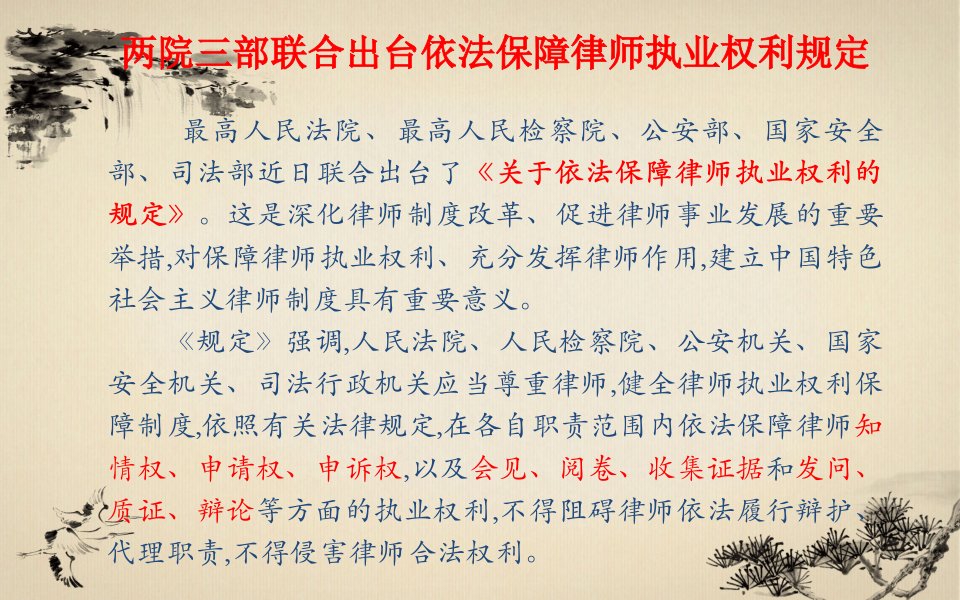 两院三部联合出台依法保障律师执业权利规定
最高人民法院、最高人民检察院、公安部、国家安全
部、司法部近日联合出台了《关于依法保障律师执业权利的
规定》。这是深化律师制度改革、促进律师事业发展的重要
举措,对保障律师执业权利、充分发挥律师作用,建立中国特色
社会主义律师制度具有重要意义。
《规定》强调,人民法院、人民检察院、公安机关、国家
安全机关、司法行政机关应当尊重律师,健全律师执业权利保
障制度,依照有关法律规定,在各自职责范围内依法保障律师知
情权、申请权、申诉权,以及会见、阅卷、收集证据和发问、
质证、辩论等方面的执业权利,不得阻碍律师依法履行辩护、
代理职责,不得侵害律师合法权利。